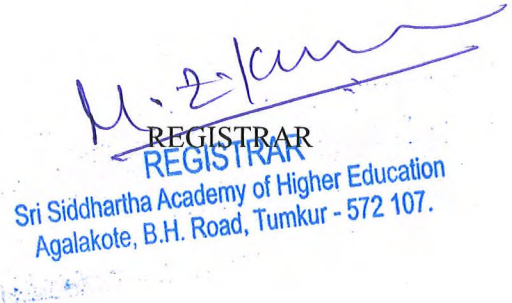 REGISTRAR
REGISTRAR
Sri Siddhartha Academy of Higher Education
Agalakote, B.H. Road, Tumkur - 572 107.